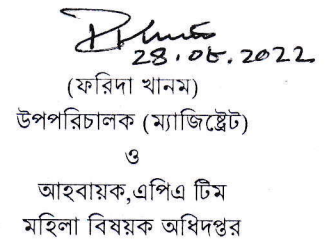 28.08.2022
(ফরিদা খানম)
উপপরিচালক (ম্যাজিষ্ট্রেট)
ও
আহবায়ক,এপিএ টিম
মহিলা বিষয়ক অধিদপ্তর